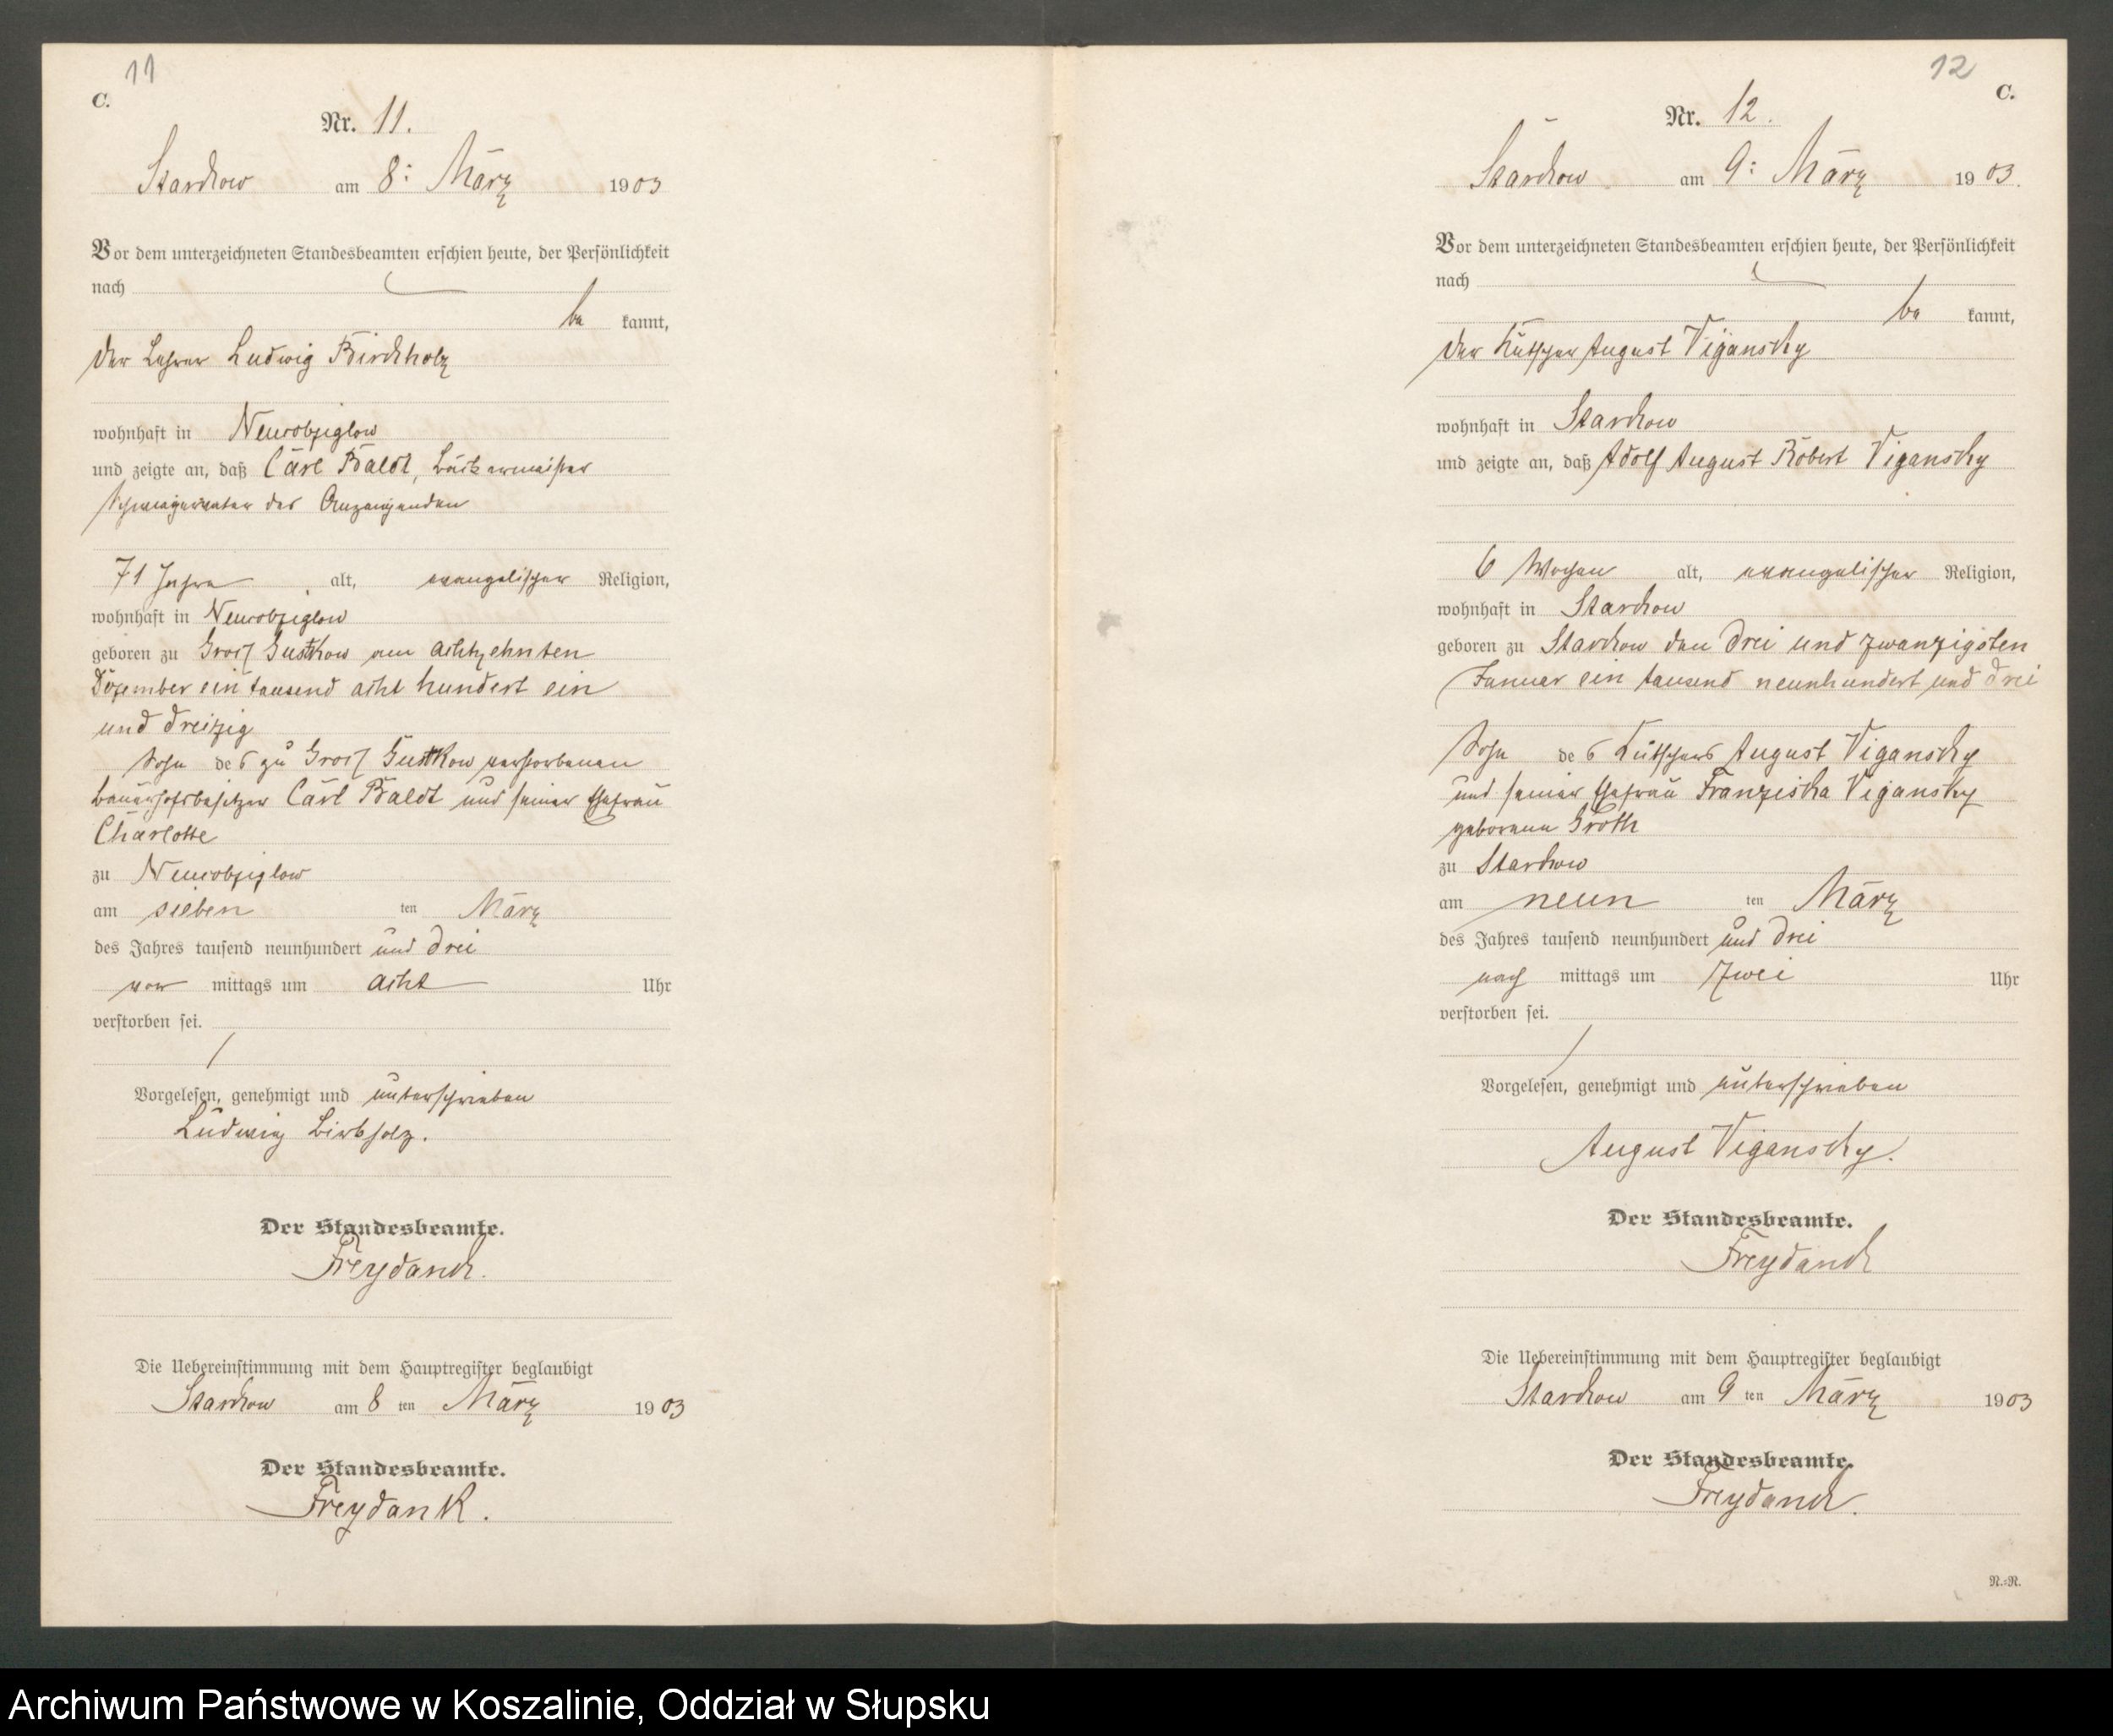 11
C.
Nr. 11.
Starckow am 8: März 1903
Vor dem unterzeichneten Standesbeamten erschien heute, der Persönlichkeit
nach
be kannt,
der Lehrer Ludwig Birckholz
wohnhaft in Neurobziglow
und zeigte an, daß Carl Baldt, Bäckermeister
Schwiegervater des Anzeigenden
71 Jahre alt, evangelischer Religion,
wohnhaft in Neurobziglow
geboren zu Groß Gustkow am achtzehnten
Dezember ein tausend acht hundert ein
und dreizig
Sohn des zu Groß Gustkow verstorbenen
Bauerhofsbesitzer Carl Baldt und seiner Ehefrau
Charlotte
zu Neurobziglow
am sieben ten März
des Jahres tausend neunhundert und drei
vor mittags um acht Uhr
verstorben sei.
Vorgelesen, genehmigt und unterschrieben
Ludwig Birkholz.
Der Standesbeamte.
Freydanck.
Die Uebereinstimmung mit dem Hauptregister beglaubigt
Starckow am 8 ten März 1903
Der Standesbeamte.
Freydank.
12
C.
Nr. 12.
Starckow am 9: März 1903.
Vor dem unterzeichneten Standesbeamten erschien heute, der Persönlichkeit
nach
be kannt,
der Kutscher August Vigansky
wohnhaft in Starckow
und zeigte an, daß Adolf August Robert Vigansky
6 Wochen alt, evangelischer Religion,
wohnhaft in Starckow
geboren zu Starckow den drei und zwanzigsten
Januar ein tausend neunhundert und drei
Sohn des Kutschers August Vigansky
und seiner Ehefrau Franziska Vigansky
geborene Groth
zu Starckow
am neun ten März
des Jahres tausend neunhundert und drei
nach mittags um zwei Uhr
verstorben sei.
Vorgelesen, genehmigt und unterschrieben
August Vigansky.
Der Standesbeamte.
Freydanck
Die Uebereinstimmung mit dem Hauptregister beglaubigt
Starckow am 9 ten März 1903
Der Standesbeamte.
Freydanck.
N.=N.
Archiwum Państwowe w Koszalinie, Oddział w Słupsku